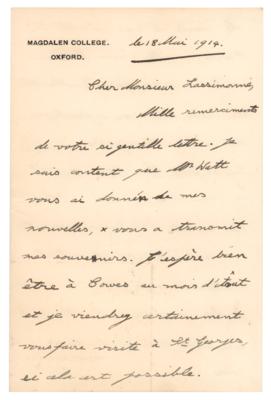 MAGDALEN COLLEGE.
OXFORD.
le 18 Mai 1914.
Cher Monsieur Lassimonne,
Mille remerciments
de votre si gentille lettre. Je
suis content que Mr Hatt
vous ai donnén de mes
nouvelles, & vous a transmit
mes souvenirs. J'espère bien
être à Cowes au mois d'
et je viendrez certainement
vous faire visite à St. Georges,
si cela est possible.